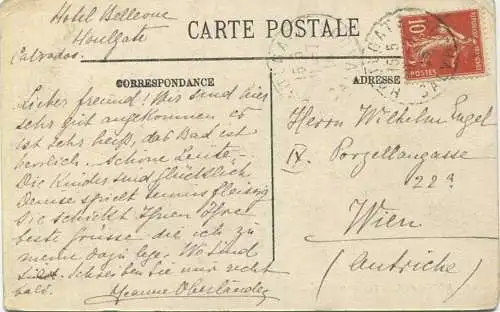 Hotel Bellevue
Houlgate
Calvados
CARTE POSTALE
CORRESPONDANCE
ADRESSE
Lieber Freund! Wir sind hier
sehr gut angekommen es
ist sehr heiß, das Bad ist
herrlich. Schöne Leute.
Die Kinder sind Glücklich
Denise spielt tennis fleissig
Sie schickt Ihnen Ihre
beste Grüsse die ich zu
meine dazu lege. Wo sind
Sie. Schreiben Sie mir recht
bald. Jeanne Oberländer
Herrn Wilhelm Engel
IX. Porzellangasse
22a
Wien
(Autriche)
10
POSTES